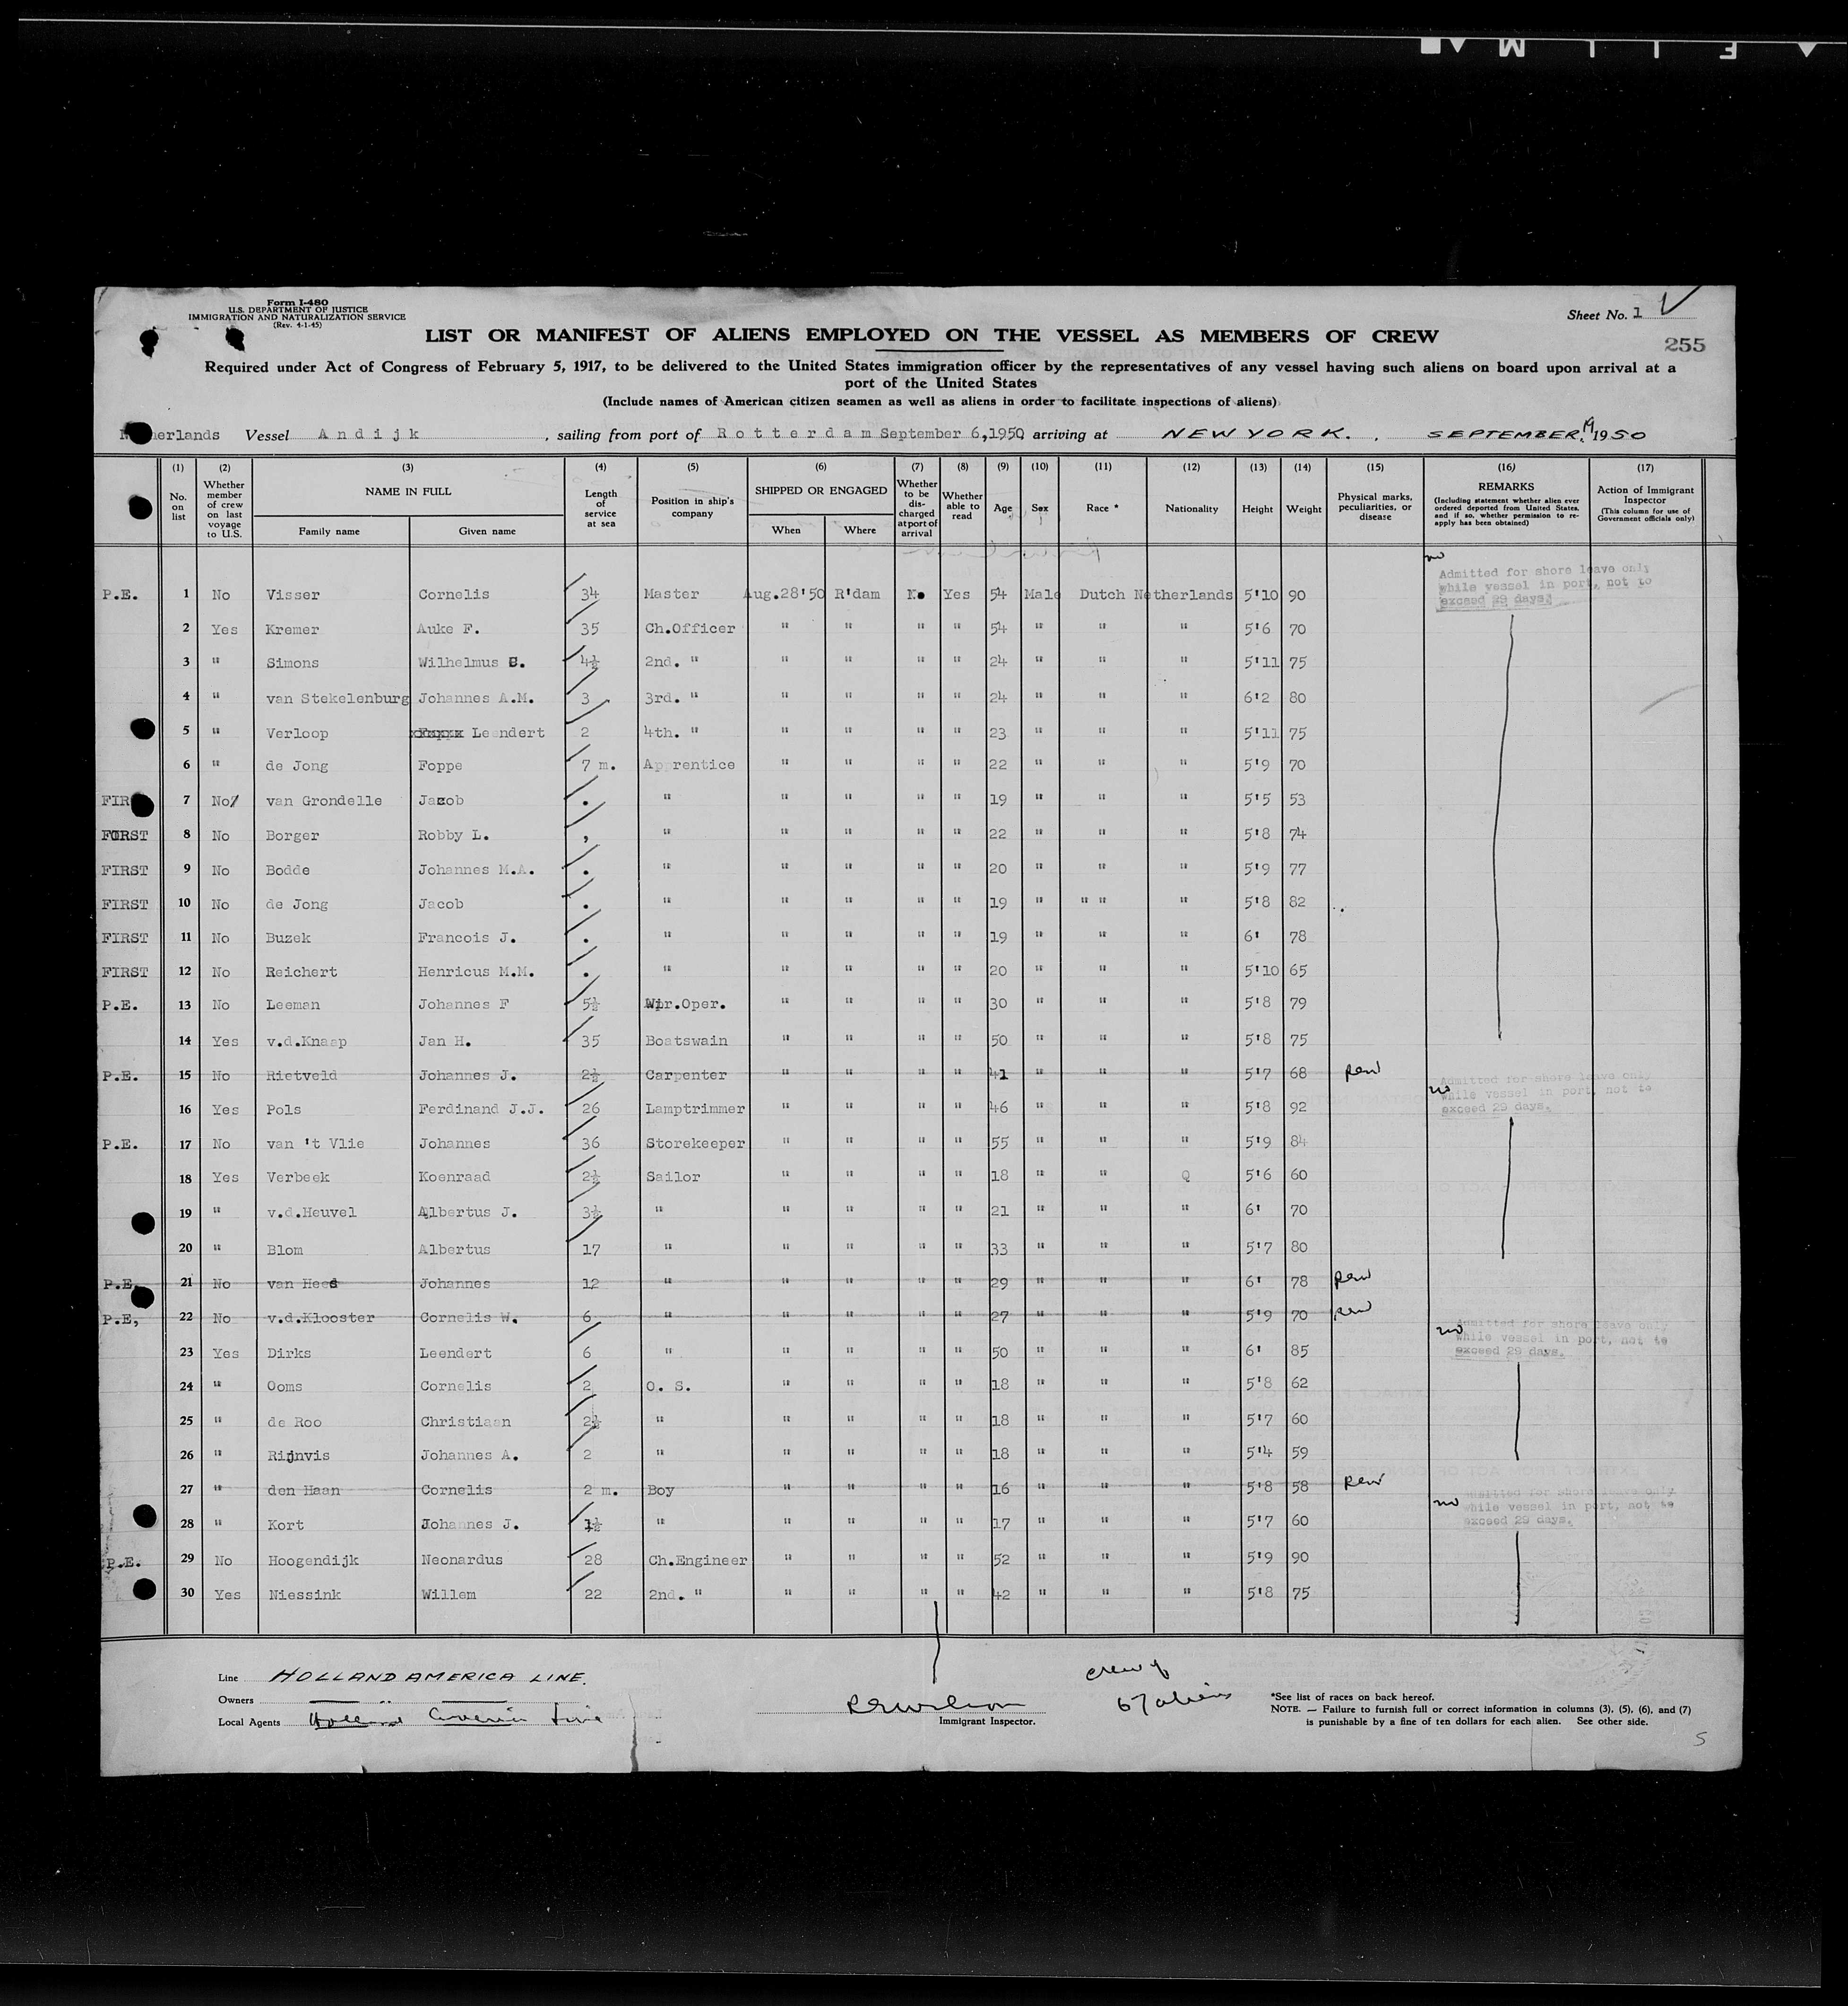 FILM
Form I-480
U.S. DEPARTMENT OF JUSTICE
IMMIGRATION AND NATURALIZATION SERVICE
(Rev. 4-1-45)
Sheet No. 1
LIST OR MANIFEST OF ALIENS EMPLOYED ON THE VESSEL AS MEMBERS OF CREW
255
Required under Act of Congress of February 5, 1917, to be delivered to the United States immigration officer by the representatives of any vessel having such aliens on board upon arrival at a
port of the United States
(Include names of American citizen seamen as well as aliens in order to facilitate inspections of aliens)
Vessel Andijk, sailing from port of Rotterdam September 6,1950 arriving at NEW YORK., SEPTEMBER, 1950
(1) (2) (3) (4) (5) (6) (7) (8) (9) (10) (11) (12) (13) (14) (15) (16) (17)
No. on list
Whether member of crew on last voyage to U.S.
NAME IN FULL
Family name
Given name
Length of service at sea
Position in ship's company
SHIPPED OR ENGAGED
When
Where
Whether to be discharged at port of arrival
Whether able to read
Age
Sex
Race *
Nationality
Height
Weight
Physical marks, peculiarities, or disease
REMARKS
(Including statement whether alien ever ordered deported from United States, and if so, whether permission to re-apply has been obtained)
Action of Immigrant Inspector
(This column for use of Government officials only)
no
Admitted for shore leave only
while vessel in port, not to
exceed 29 days.
P.E. 1 No Visser Cornelis 34 Master Aug.28'50 R'dam No Yes 54 Male Dutch Netherlands 5'10 90
2 Yes Kremer Auke F. 35 Ch.Officer " " " " 54 " " " 5'6 70
3 " Simons Wilhelmus 4½ 2nd. " " " " " 24 " " " 5'11 75
4 " van Stekelenburg Johannes A.M. 3 3rd. " " " " " 24 " " " 6'2 80
5 " Verloop Leendert 2 4th. " " " " " 23 " " " 5'11 75
6 " de Jong Foppe 7 m. Apprentice " " " " 22 " " " 5'9 70
7 No van Grondelle Jacob . " " " " " 19 " " " 5'5 53
FIRST 8 No Borger Robby L. , " " " " " 22 " " " 5'8 74
FIRST 9 No Bodde Johannes M.A. . " " " " " 20 " " " 5'9 77
FIRST 10 No de Jong Jacob . " " " " " 19 " " " " 5'8 82
FIRST 11 No Buzek Francois J. . " " " " " 19 " " " 6' 78
FIRST 12 No Reichert Henricus M.M. . " " " " " 20 " " " 5'10 65
P.E. 13 No Leeman Johannes F 5½ Wir.Oper. " " " " 30 " " " 5'8 79
14 Yes v.d.Knaap Jan H. 35 Boatswain " " " " 50 " " " 5'8 75
P.E. 15 No Rietveld Johannes J. 2½ Carpenter " " " " 41 " " " 5'7 68
no
Admitted for shore leave only
while vessel in port, not to
exceed 29 days.
16 Yes Pols Ferdinand J.J. 26 Lamptrimmer " " " " 46 " " " 5'8 92
P.E. 17 No van 't Vlie Johannes 36 Storekeeper " " " " 55 " " " 5'9 84
18 Yes Verbeek Koenraad 2½ Sailor " " " " 18 " " Q 5'6 60
19 " v.d.Heuvel Albertus J. 3½ " " " " " 21 " " " 6' 70
20 " Blom Albertus 17 " " " " " 33 " " " 5'7 80
P.E. 21 No van Hees Johannes 12 " " " " " 29 " " " 6' 78
P.E, 22 No v.d.Klooster Cornelis W. 6 " " " " " 27 " " " 5'9 70
no
Admitted for shore leave only
while vessel in port, not to
exceed 29 days.
23 Yes Dirks Leendert 6 " " " " " 50 " " " 6' 85
24 " Ooms Cornelis 2 O. S. " " " " 18 " " " 5'8 62
25 " de Roo Christiaan 2½ " " " " " 18 " " " 5'7 60
26 " Rijnvis Johannes A. 2 " " " " " 18 " " " 5'4 59
27 " den Haan Cornelis 2 m. Boy " " " " 16 " " " 5'8 58
no
Admitted for shore leave only
while vessel in port, not to
exceed 29 days.
28 " Kort Johannes J. 1½ " " " " " 17 " " " 5'7 60
P.E. 29 No Hoogendijk Neonardus 28 Ch.Engineer " " " " 52 " " " 5'9 90
30 Yes Niessink Willem 22 2nd. " " " " " 42 " " " 5'8 75
Line HOLLAND AMERICA LINE.
Owners
Local Agents Holland America Line
Immigrant Inspector.
crew of
67 aliens
*See list of races on back hereof.
NOTE. — Failure to furnish full or correct information in columns (3), (5), (6), and (7)
is punishable by a fine of ten dollars for each alien. See other side.
5